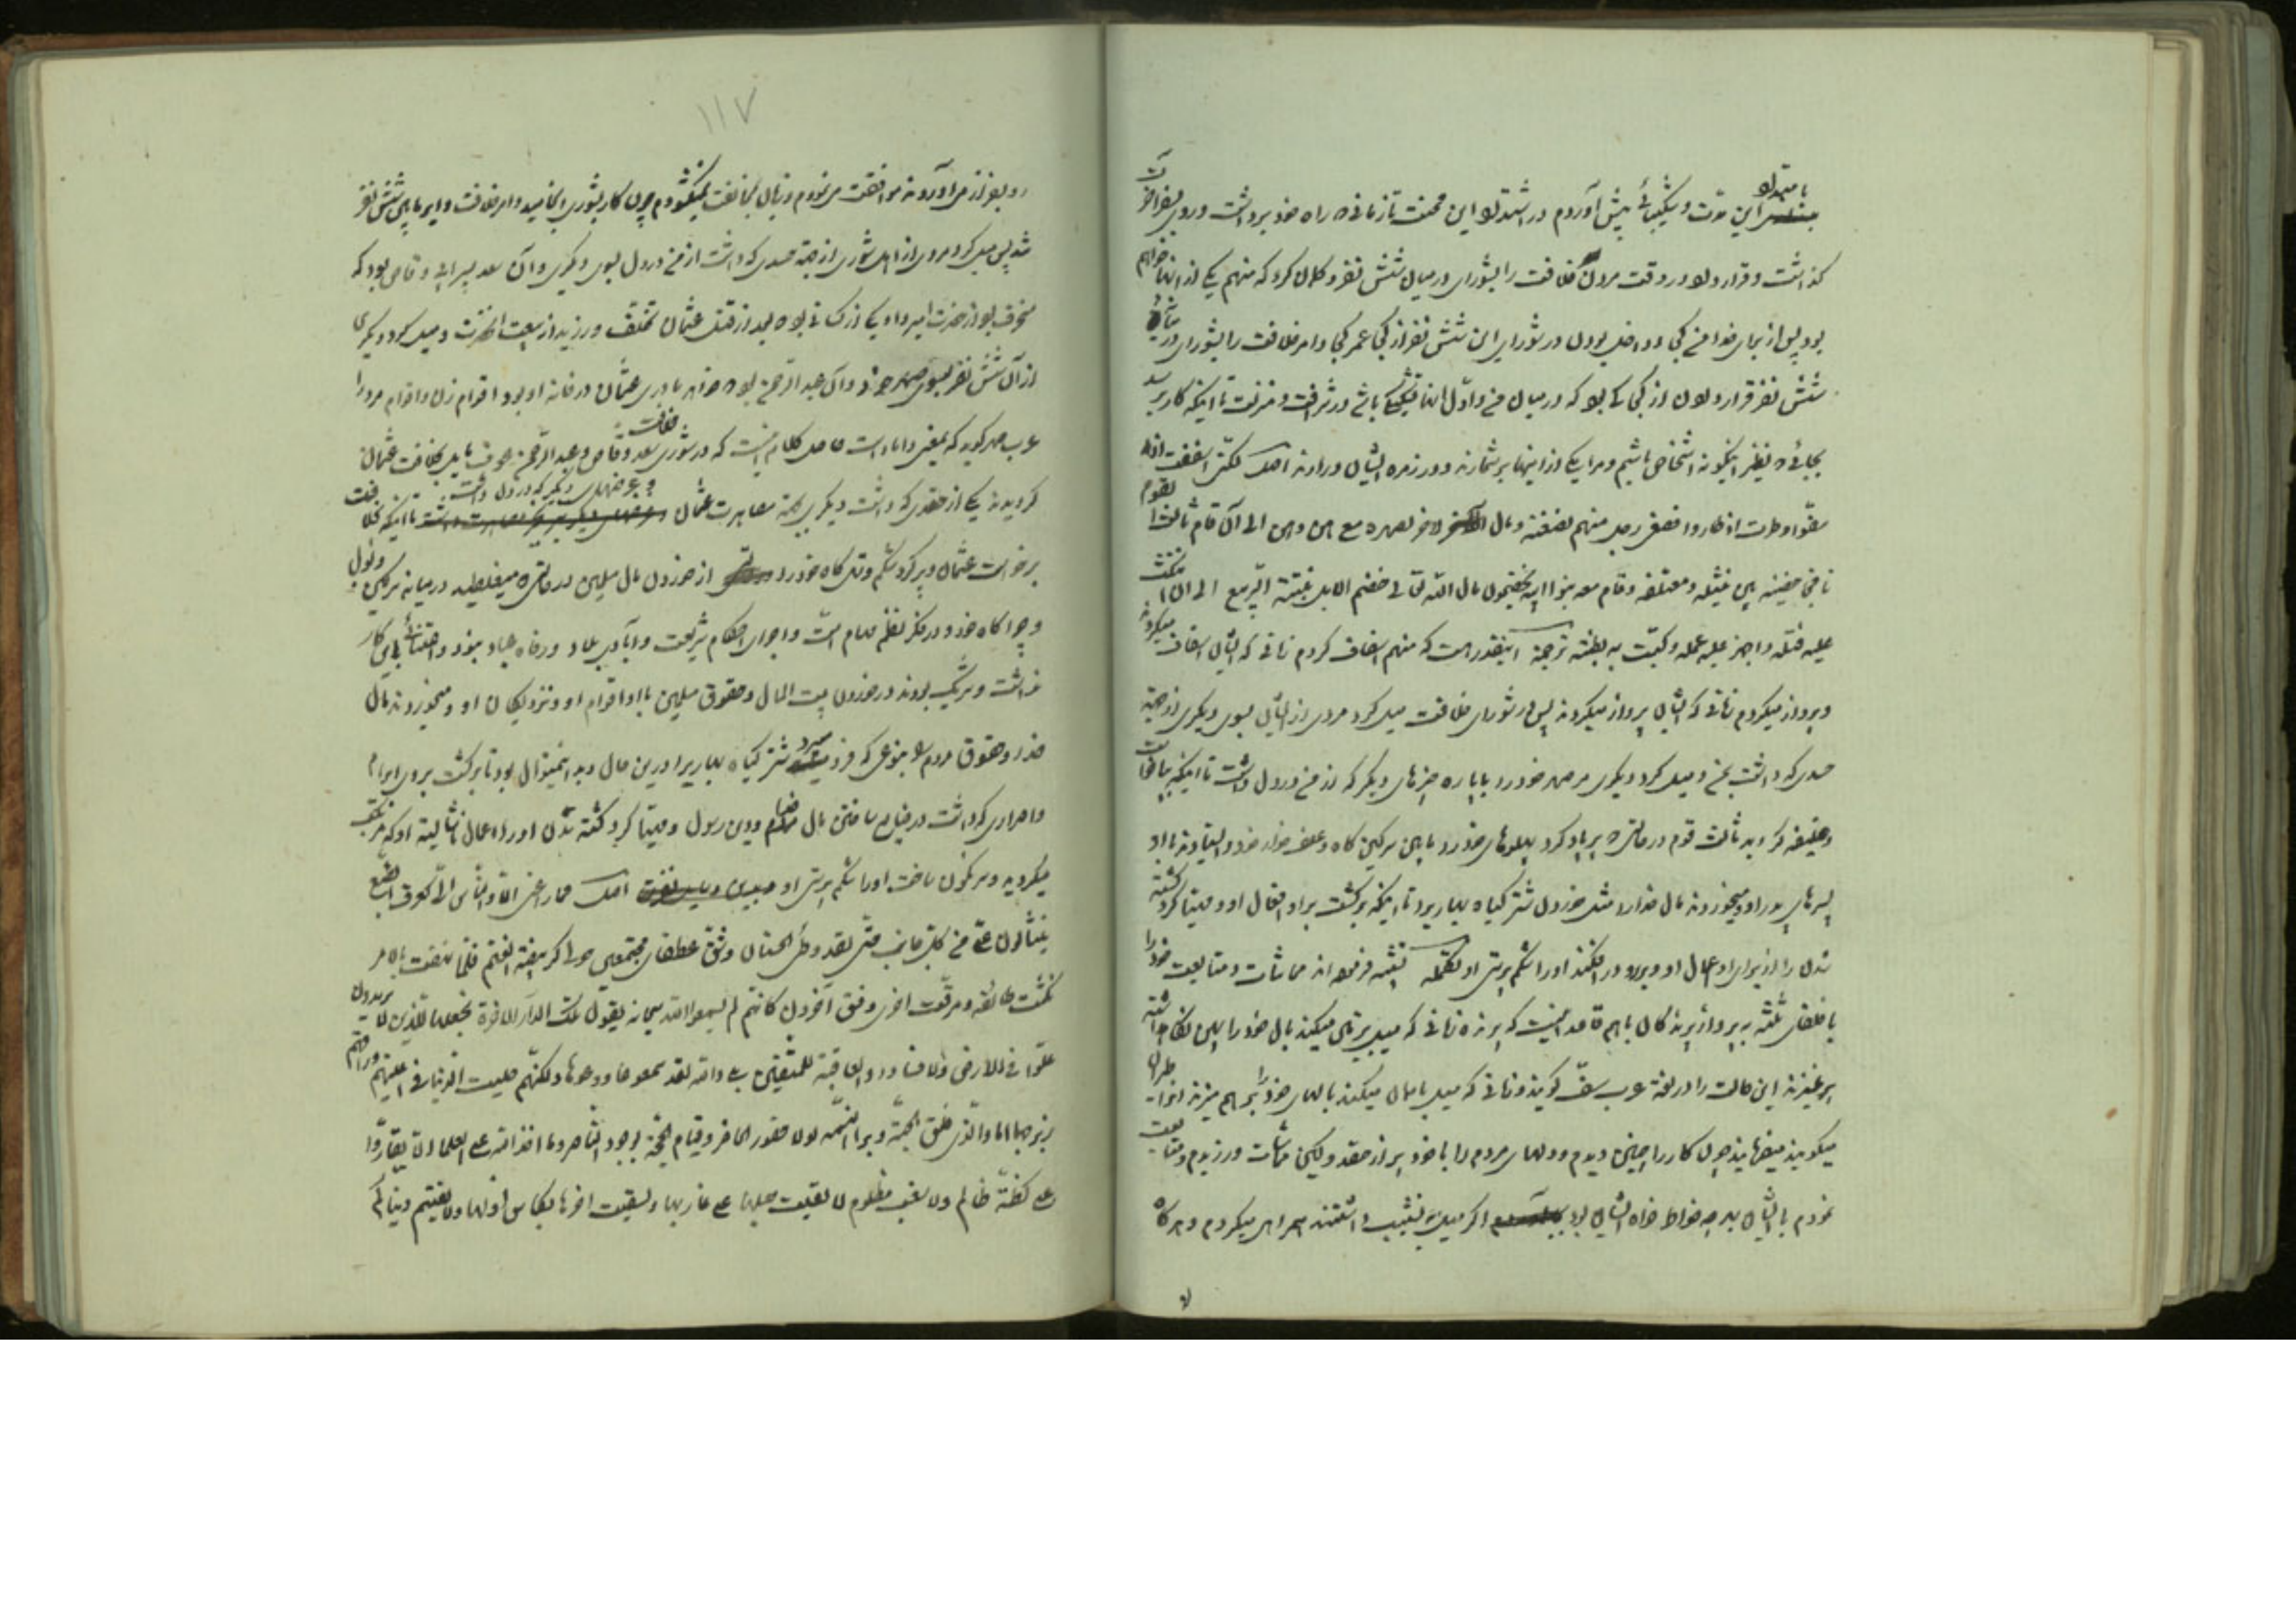 بامتداد
این مدت و شکیبائی پیش آوردم در اشتداد این محنت تا زمانی که راه خود برداشت و روی بفرا
گذاشت و قرار داد در وقت مردن خلافت را بشورای در میان شش نفر و گمان کرد که منهم یکی از آنها خواهم
بود پس از برای خدا من کجا و داخل بودن در شورای این شش نفر از کجا عمر کجا و امر خلافت را بشورای در میانه
شش نفر قرار دادن از کجا کی بود که در میان من و اول آنها شکی باشد در شرافت و منزلت تا اینکه کار برسد
بجائی که نظیر اینگونه اشخاص باشیم و مرا یکی از اینها بشمارند و در زمره ایشان درارند اصل لکنی اسففت اذا
سفوا و طرت اذ طاروا فصغی رجل منهم لضغنه و مال الاخر لصهره مع هن و هن الی ان قام ثالث القوم
نافجا حضنیه بین نثیله و معتلفه و قام معه بنوا ابیه یخضمون مال الله تعالی خضم الابل نبتة الربیع الی ان انتکث
علیه فتله و اجهز علیه عمله و کبت به بطنته ترجمه اینقدر هست که منهم اسفاف کردم زمانی که ایشان اسفاف میکردند
و پرواز میکردم زمانی که ایشان پرواز میکردند پس در شورای خلافت میل کرد مردی از ایشان بسوی دیگری از جهة
حسدی که داشت بمن و میل کرد دیگری بر صهر خودرا با پاره چیزهای دیگر که از من در دل داشت تا اینکه
و خلیفه گردید ثالث قوم در حالتی که پر باد کرد پهلوهای خودرا مابین سرکین گاه و علف خوار خود و ایستادند با او
پسرهای پدر او و میخوردند مال خدارا مثل خوردن شتر گیاه بهار را تا اینکه برگشت بر او افعال او و مهیا کرد کشته
شدن را از برای او اعمال او و برو در افکند اورا شکم پرستی او تکمله تشبیه فرموده اند مماشات و متابعت خودرا
با خلفای ثلثه به پرواز پرندگان باهم قاعده اینست که پرنده زمانی که میل بزیر میکند بال خود را
برنمیزند این حالت را در لغة عرب سف گویند و زمانی که میل ببالا میکند بالهای خودرا بهم میزند انرا طیران
میکویند میفرمایند چون کار را چنین دیدم و دلهای مردم را با خود پر از حقد ولیکن مماشات ورزیدم و متابعت
نمودم با ایشان بهر چه خواطر خواه ایشان بود اگر میل به نشیب داشتند همراهی میکردم و هرگاه
۱۱۷
رو بفراز می آوردند موافقت می نمودم و بال مخالفت نمیگشودم چون کار بشوری انجامید و امر خلافت دایر مابین شش نفر
شد پس میل کرد مردی از اهل شوری از جهة حسدی که داشت از من در دل بسوی دیگری و آن سعد پسر ابی وقاص بود که
منحرف بود از حضرت امیر و او یکی از کسانی بود که بعد از قتل عثمان تخلف ورزید از بیعت انحضرت و میل کرد دیگری
از آن شش نفر بسوی صهر خود و آن عبد الرحمن بود که خواهر مادری عثمان در خانه او بود و اقوام زن و اقوام مرد را
عرب صهر گوید که بمعنی داماد است حاصل کلام اینست که در شوری خلافت سعد وقاص و عبد الرحمن عوف مایل بخلافت عثمان
گردیدند یکی از حقدی که داشت دیگری بجهة مصاهرت عثمان و غرضهای دیگر که در دل داشت تا اینکه بخلافت
برخواست عثمان و پر کرد شکم و تهی گاه خودرا از خوردن مال مسلمین در حالتی که میغلطید در میانه سرکین
و چراگاه خود و در فکر نظم مهام امت و اجرای احکام شریعت و آبادی بلاد و رفاه عباد نبود و اعتنائی باین کار
نداشت و شریک بودند در خوردن بیت المال و حقوق مسلمین با او اقوام او و نزدیکان او و میخوردند مال
خدا و حقوق مردم را بنوعی که فرو میبرد شتر گیاه بهار را در این حال و بدانمنوال بود تا برگشت بروی ابرام
و اصراری که داشت در ضایع ساختن مال خدا و دین رسول و مهیا کرد کشته شدن اورا اعمال ناشایسته او که مرتکب
میگردید و سرنگون ساخت اورا شکم پرستی او اصل فما راعنی الا و الناس الی کعرف الضبع
ینثالون علی من کل جانب حتی لقد وطئ الحسنان و شق عطفای مجتمعین حولی کربیضة الغنم فلما نهضت بالامر
نکثت طائفه و مرقت اخری و فسق آخرون کانهم لم یسمعوا الله سبحانه یقول تلک الدار الاخرة نجعلها للذین لا یریدون
علوا فی الارض و لا فسادا و العاقبة للمتقین بلی والله لقد سمعوها و وعوها ولکنهم حلیت الدنیا فی اعینهم و راقهم
زبرجها اما والذی فلق الحبة و برأ النسمه لولا حضور الحاضر و قیام الحجة بوجود الناصر و ما اخذ الله علی العلماء ان لا یقاروا
علی کظة ظالم ولا سغب مظلوم لالقیت حبلها علی غاربها و لسقیت اخرها بکاس اولها و لالفیتم دنیاکم